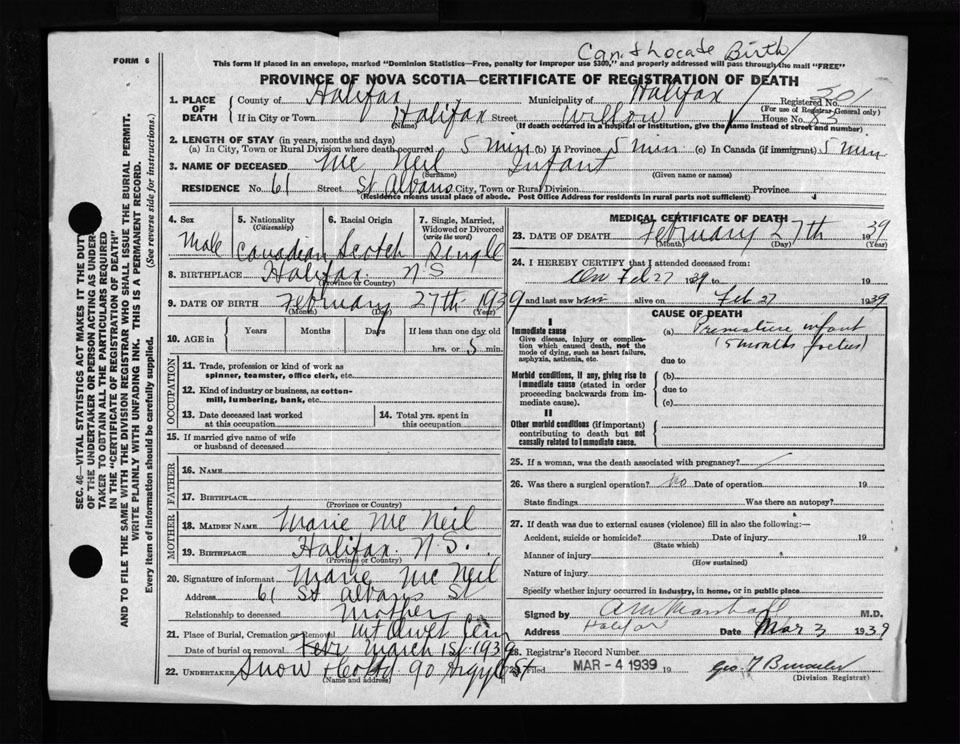 Can. & Locate Birth
FORM 6
This form if placed in an envelope, marked "Dominion Statistics—Free, penalty for improper use $300," and properly addressed will pass through the mail "FREE"
PROVINCE OF NOVA SCOTIA—CERTIFICATE OF REGISTRATION OF DEATH
1. PLACE OF DEATH County of Halifax Municipality of Halifax Registered No. 301
(For use of Registrar General only)
If in City or Town Halifax Street Willow House No. 85
(Name) (If death occurred in a hospital or institution, give the name instead of street and number)
2. LENGTH OF STAY (in years, months and days)
(a) In City, Town or Rural Division where death occurred 5 min (b) In Province 5 min (c) In Canada (if immigrant) 5 min
3. NAME OF DECEASED Mc Neil Infant
(Surname) (Given name or names)
RESIDENCE No. 61 Street St Albans City, Town or Rural Division Province
(Residence means usual place of abode. Post Office Address for residents in rural parts not sufficient)
SEC. 46—VITAL STATISTICS ACT MAKES IT THE DUTY
OF THE UNDERTAKER OR PERSON ACTING AS UNDER-
TAKER "TO OBTAIN ALL THE PARTICULARS REQUIRED
IN THE "CERTIFICATE OF REGISTRATION OF DEATH"
AND TO FILE THE SAME WITH THE DIVISION REGISTRAR, WHO SHALL ISSUE THE BURIAL PERMIT.
WRITE PLAINLY WITH UNFADING INK. THIS IS A PERMANENT RECORD.
Every item of information should be carefully supplied. (See reverse side for instructions.)
4. Sex 5. Nationality (Citizenship) 6. Racial Origin 7. Single, Married, Widowed or Divorced (write the word)
Male Canadian Scotch Single
8. BIRTHPLACE Halifax N S
(Province or Country)
9. DATE OF BIRTH February 27th 1939
(Month) (Day) (Year)
10. AGE in Years Months Days If less than one day old
hrs. or 5 min.
OCCUPATION
11. Trade, profession or kind of work as spinner, teamster, office clerk, etc.
12. Kind of industry or business, as cotton-mill, lumbering, bank, etc.
13. Date deceased last worked at this occupation
14. Total yrs. spent in this occupation
15. If married give name of wife or husband of deceased
FATHER
16. NAME
17. BIRTHPLACE
(Province or Country)
MOTHER
18. MAIDEN NAME Marie Mc Neil
19. BIRTHPLACE Halifax N S.
(Province or Country)
20. Signature of informant Marie Mc Neil
Address 61 St Albans St
Relationship to deceased Mother
21. Place of Burial, Cremation or Removal Mt Olivet Cem
Date of burial or removal Feby March 1st 1939
22. UNDERTAKER Snow & Co Ltd 90 Argyle St
(Name and address)
MEDICAL CERTIFICATE OF DEATH
23. DATE OF DEATH February 27th 1939
(Month) (Day) (Year)
24. I HEREBY CERTIFY that I attended deceased from:
On Feb 27 1939 to 19
and last saw him alive on Feb 27 1939
CAUSE OF DEATH
I
Immediate cause (a) Premature infant
Give disease, injury or complication which caused death, not the mode of dying, such as heart failure, asphyxia, asthenia, etc.
(5 months foetus)
due to
Morbid conditions, if any, giving rise to immediate cause (stated in order proceeding backwards from immediate cause).
(b)
due to
(c)
II
Other morbid conditions (if important) contributing to death but not causally related to immediate cause.
25. If a woman, was the death associated with pregnancy?
26. Was there a surgical operation? no Date of operation 19
State findings Was there an autopsy?
27. If death was due to external causes (violence) fill in also the following:—
Accident, suicide or homicide? Date of injury 19
(State which)
Manner of injury
(How sustained)
Nature of injury
Specify whether injury occurred in industry, in home, or in public place
Signed by A M Marshall M.D.
Address Halifax Date Mar 3 1939
28. Registrar's Record Number
Filed MAR - 4 1939 19
(Division Registrar)